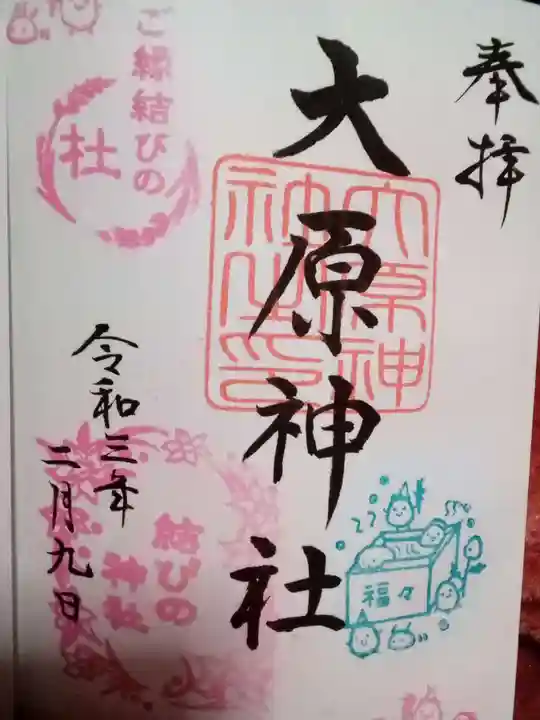 奉拝
大原神社
大原神
社之印
ご縁結びの
杜
令和三年
二月九日
結びの
神社
福々